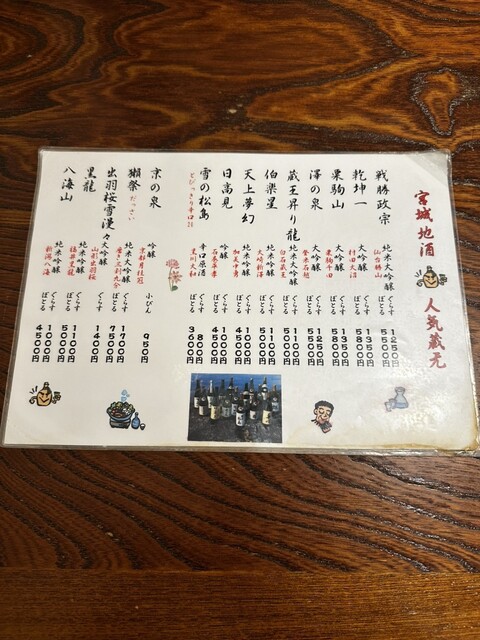 宮城地酒 人気蔵元
戦勝政宗 純米大吟醸 ぐらす 1250円
仙台勝山 ぼとる 5500円
乾坤一 大吟醸 ぐらす 1350円
ぼとる 5800円
栗駒山 大吟醸 ぐらす 1350円
ぼとる 5800円
澤の泉 大吟醸 ぐらす 1250円
登米石越 ぼとる 5500円
蔵王昇り龍 純米大吟醸 ぐらす
白石蔵王 ぼとる 5000円
伯楽星 純米吟醸 ぐらす 1100円
大崎新澤 ぼとる 5000円
天上夢幻 純米吟醸 ぐらす 1000円
ぼとる 4500円
日高見 吟醸 ぐらす 1000円
石巻平孝 ぼとる 4500円
雪の松島 辛口原酒 ぐらす 800円
とびっきり辛口 黒川大和 ぼとる 3600円
京の泉 吟醸 小びん 950円
獺祭 だっさい 純米大吟醸 ぐらす 1700円
磨き三割九分 ぼとる 7500円
出羽桜雪漫々 大吟醸 ぐらす 1400円
山形出羽桜
黒龍 純米吟醸 ぐらす 1100円
ぼとる 5000円
八海山 純米吟醸 ぐらす 1000円
新潟八海 ぼとる 4500円